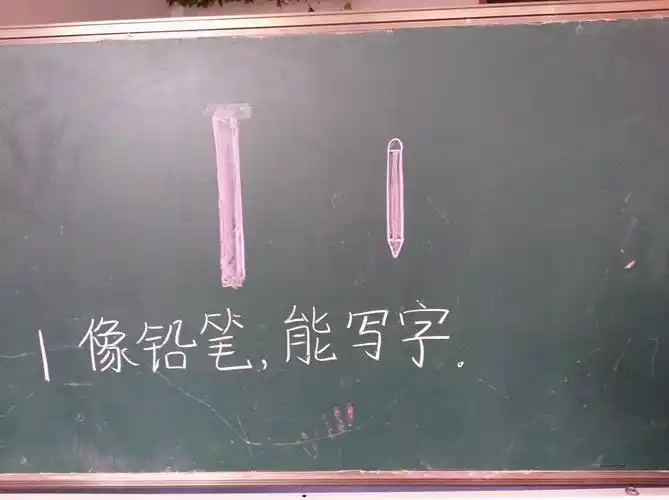 1像铅笔,能写字。